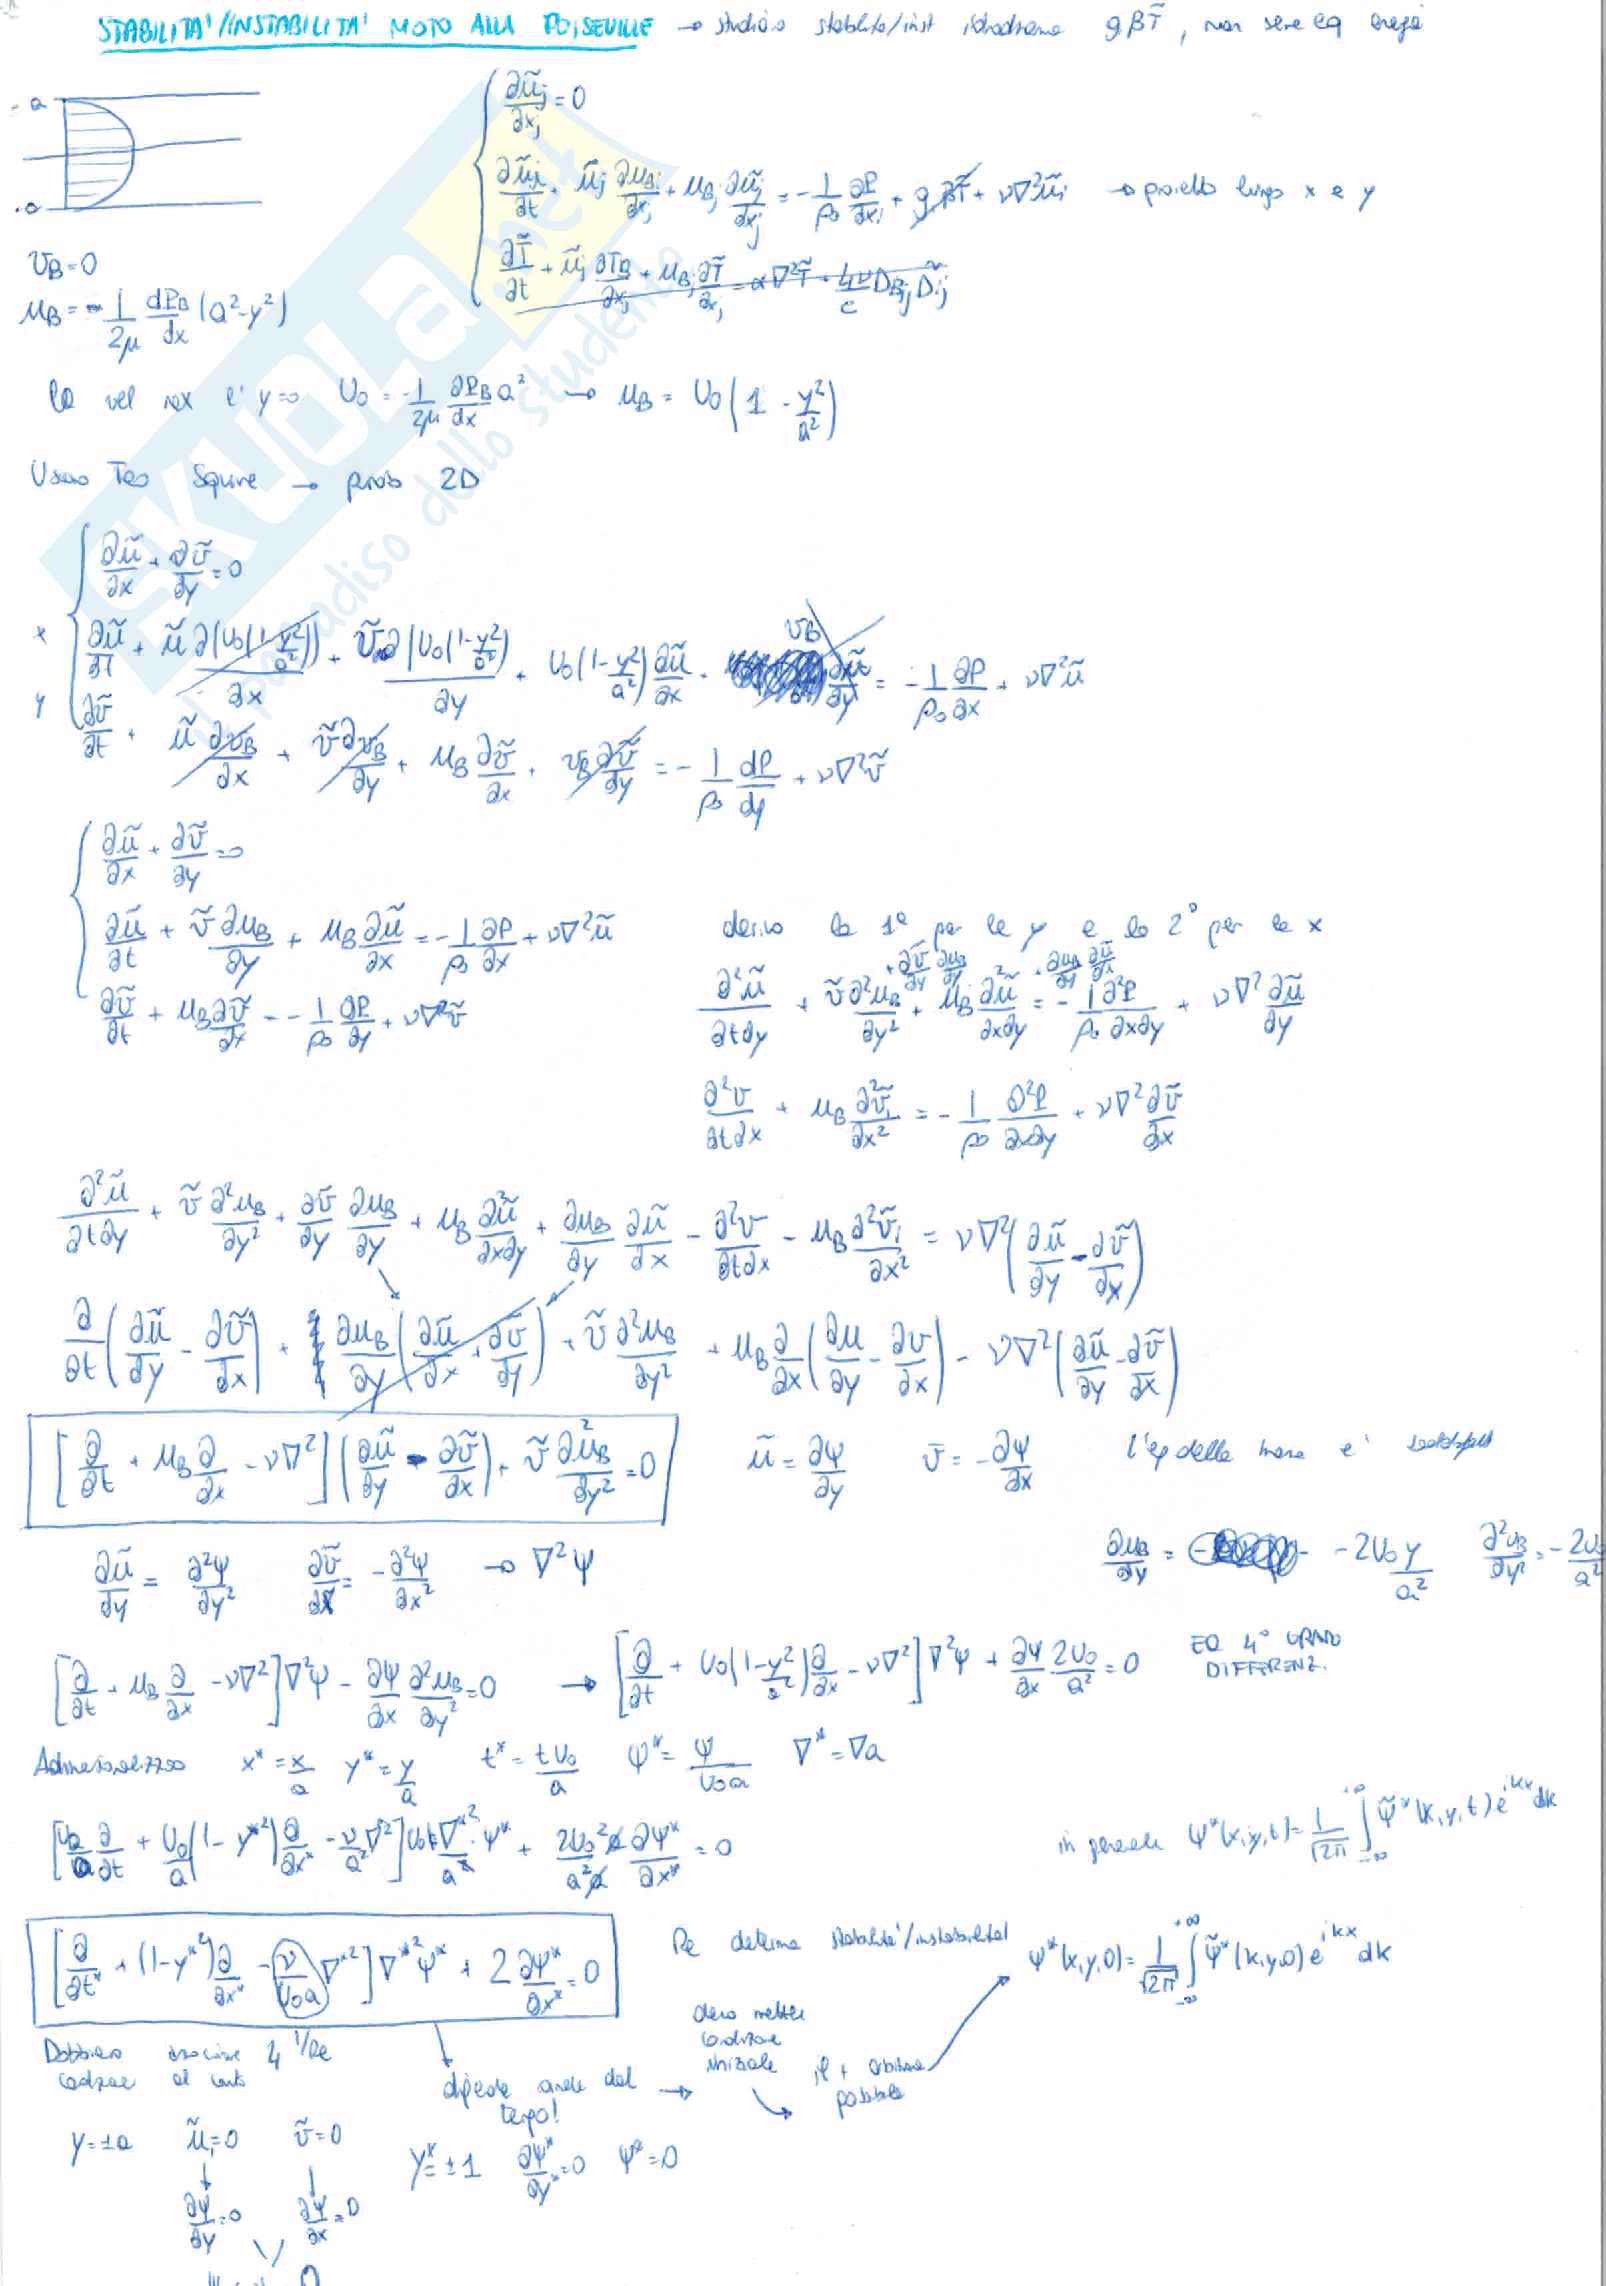 STABILITA'/INSTABILITA' MOTO ALLA POISEVILLE → studio stabilità/inst idrodinamica gβT̃, non serve eq energia
a
-a
∂ũj/∂xj = 0
∂ũi/∂t + ũj ∂uBi/∂xj + uBj ∂ũi/∂xj = -1/ρ0 ∂P/∂xi + gβT̃ + ν∇²ũi → proietto lungo x e y
∂T̃/∂t + ũj ∂TB/∂xj + uBj ∂T̃/∂xj = α∇²T̃ + 4ν/c DBij D̃ij
vB=0
uB = -1/2μ dPB/dx (a²-y²)
la vel max e' y=0 U0 = -1/2μ ∂PB/dx a² → uB = U0(1 - y²/a²)
Usano Teo Squire → prob 2D
∂ũ/∂x + ∂ṽ/∂y = 0
x ∂ũ/∂t + ũ ∂(U0(1-y²/a²))/∂x + ṽ ∂(U0(1-y²/a²))/∂y + U0(1-y²/a²) ∂ũ/∂x + vB ∂ũ/∂y = -1/ρ0 ∂P/∂x + ν∇²ũ
y ∂ṽ/∂t + ũ ∂vB/∂x + ṽ ∂vB/∂y + uB ∂ṽ/∂x + vB ∂ṽ/∂y = -1/ρ0 dP/dy + ν∇²ṽ
∂ũ/∂x + ∂ṽ/∂y = 0
∂ũ/∂t + ṽ ∂uB/∂y + uB ∂ũ/∂x = -1/ρ0 ∂P/∂x + ν∇²ũ
∂ṽ/∂t + uB ∂ṽ/∂x = -1/ρ0 ∂P/∂y + ν∇²ṽ
derivo la 1ª per la y e la 2ª per la x
∂²ũ/∂t∂y + ṽ ∂²uB/∂y² + ∂ṽ/∂y ∂uB/∂y + uB ∂²ũ/∂x∂y + ∂uB/∂y ∂ũ/∂x = -1/ρ0 ∂²P/∂x∂y + ν∇² ∂ũ/∂y
∂²v/∂t∂x + uB ∂²ṽ/∂x² = -1/ρ0 ∂²P/∂x∂y + ν∇² ∂ṽ/∂x
∂²ũ/∂t∂y + ṽ ∂²uB/∂y² + ∂ṽ/∂y ∂uB/∂y + uB ∂²ũ/∂x∂y + ∂uB/∂y ∂ũ/∂x - ∂²v/∂t∂x - uB ∂²ṽ/∂x² = ν∇²(∂ũ/∂y - ∂ṽ/∂x)
∂/∂t(∂ũ/∂y - ∂ṽ/∂x) + ∂uB/∂y(∂ũ/∂x + ∂ṽ/∂y) + ṽ ∂²uB/∂y² + uB ∂/∂x(∂u/∂y - ∂v/∂x) - ν∇²(∂ũ/∂y - ∂ṽ/∂x)
[∂/∂t + uB ∂/∂x - ν∇²](∂ũ/∂y - ∂ṽ/∂x) + ṽ ∂²uB/∂y² = 0 ũ = ∂ψ/∂y ṽ = -∂ψ/∂x l'eq della massa e'
∂ũ/∂y = ∂²ψ/∂y² ∂ṽ/∂x = -∂²ψ/∂x² → ∇²ψ ∂uB/∂y = -2U0y/a² ∂²uB/∂y² = -2U0/a²
[∂/∂t + uB ∂/∂x - ν∇²]∇²ψ - ∂ψ/∂x ∂²uB/∂y² = 0 → [∂/∂t + U0(1-y²/a²)∂/∂x - ν∇²]∇²ψ + ∂ψ/∂x 2U0/a² = 0 EQ 4° GRADO
DIFFERENZ.
Adimensionalizzo x* = x/a y* = y/a t* = tU0/a ψ* = ψ/U0a ∇* = ∇a
[U0/a ∂/∂t + U0/a(1-y*²)∂/∂x* - ν/a²∇²]U0a ∇*²/a² ψ* + 2U0²a/a²a ∂ψ*/∂x* = 0
in generale ψ*(x,y,t) = 1/√2π ∫-∞+∞ ψ̃*(k,y,t)e^ikx dk
[∂/∂t* + (1-y*²)∂/∂x* - ν/U0a ∇*²]∇*²ψ* + 2∂ψ*/∂x* = 0
1/Re
Re determina stabilità/instabilità
ψ*(x,y,0) = 1/√2π ∫-∞+∞ ψ̃*(k,y,0)e^ikx dk
Dobbiamo associare 4
condizioni al contorno
dipende anche dal
tempo!
→ devo mettere
condizione
iniziale
il + arbitraria
possibile
y=±a ũ=0 ṽ=0
∂ψ/∂y=0 ∂ψ/∂x=0
y*=±1 ∂ψ*/∂y*=0 ψ*=0
SKUOLA.net
il paradiso dello studente